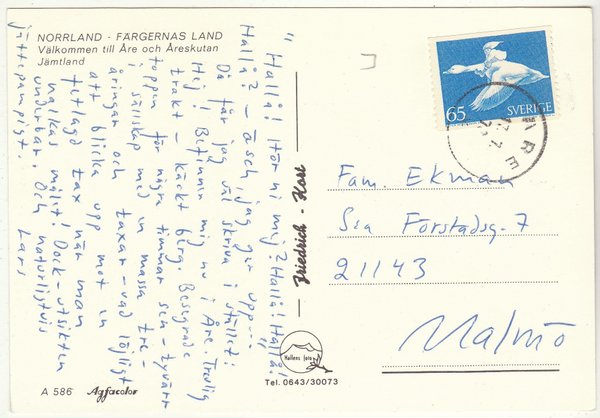 NORRLAND - FÄRGERNAS LAND
Välkommen till Åre och Åreskutan
Jämtland
"Hallå! Hör ni mej? Hallå! Hallå!
Hallå?- äsch, jag ger upp---"
Då får jag väl skriva i stället!
Hej! Befinner mig nu i Åre. Trevlig
trakt - käckt berg. Besegrade
toppen för några timmar sen - tyvärr
i sällskap med en massa tre-
åringar och taxar - vad löjligt
att blicka upp mot en
fetlagd tax när man
nalkas målet! Dock - utsikten
underbar. Och naturligtvis
jättepampigt.
Lars
Friedrich - Kort
65 SVERIGE
ÅRE
17.7
Fam. Ekman
S:a Förstadsg. 7
21143
Malmö
Hallens foto
Tel. 0643/30073
A 586 Agfacolor